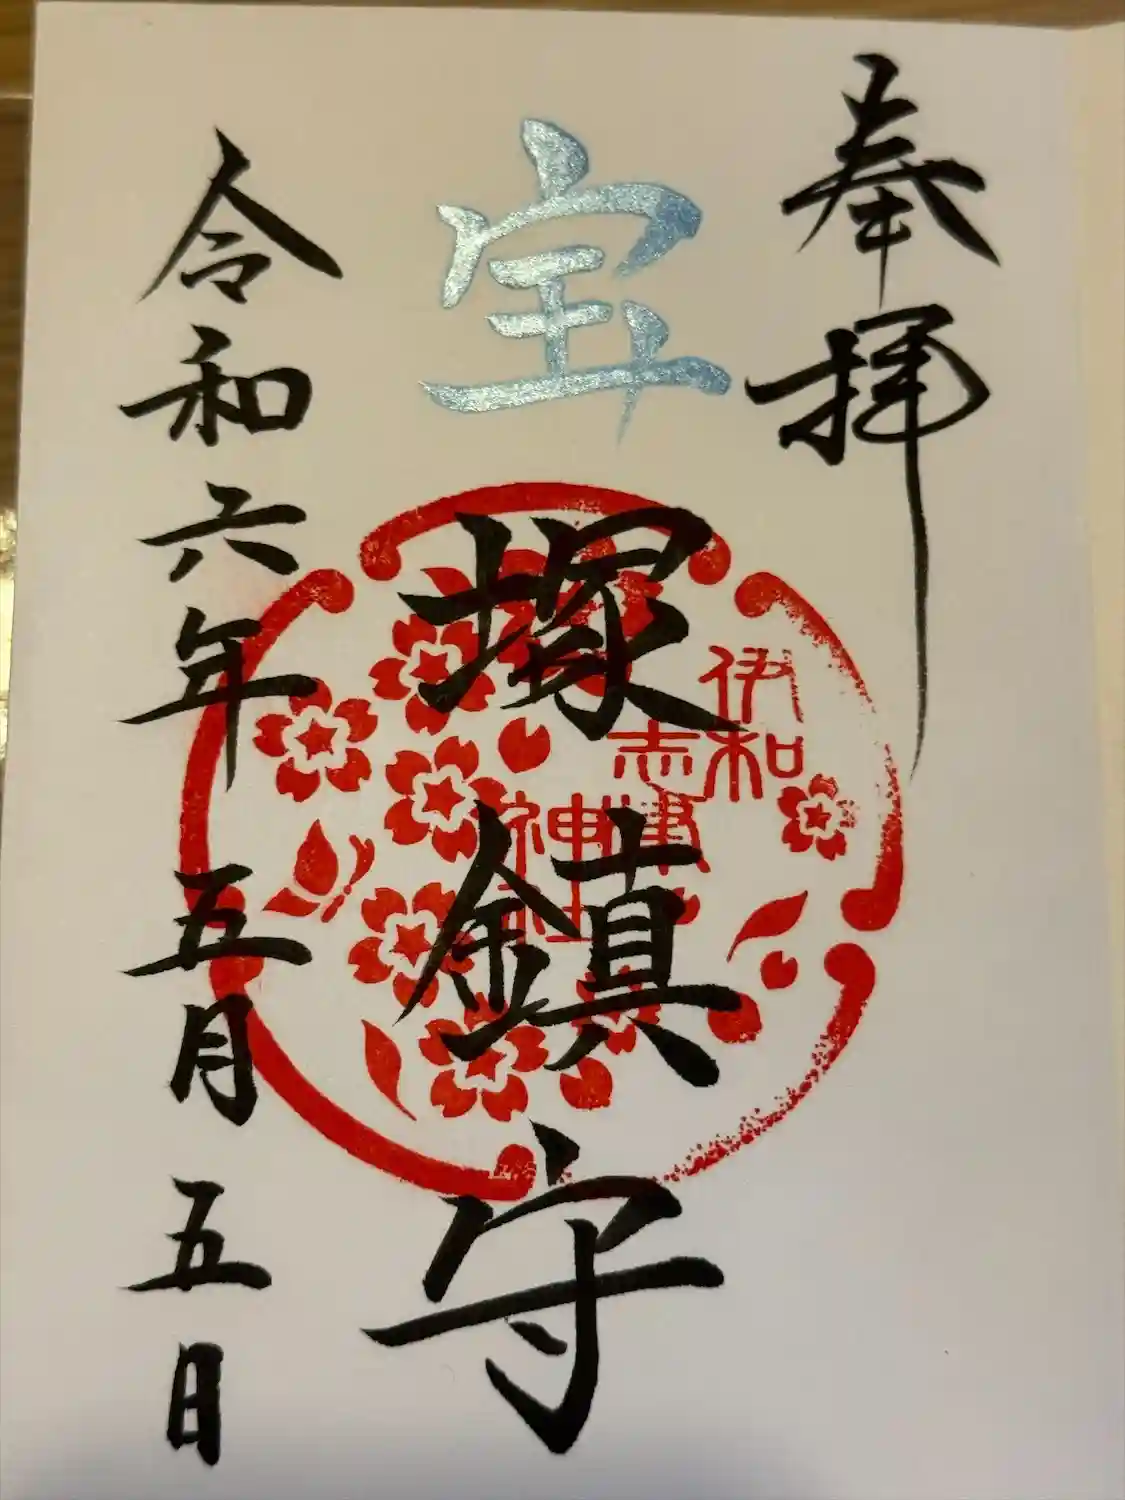 奉拝
宝塚鎮守
伊和
志津
神社
令和六年五月五日